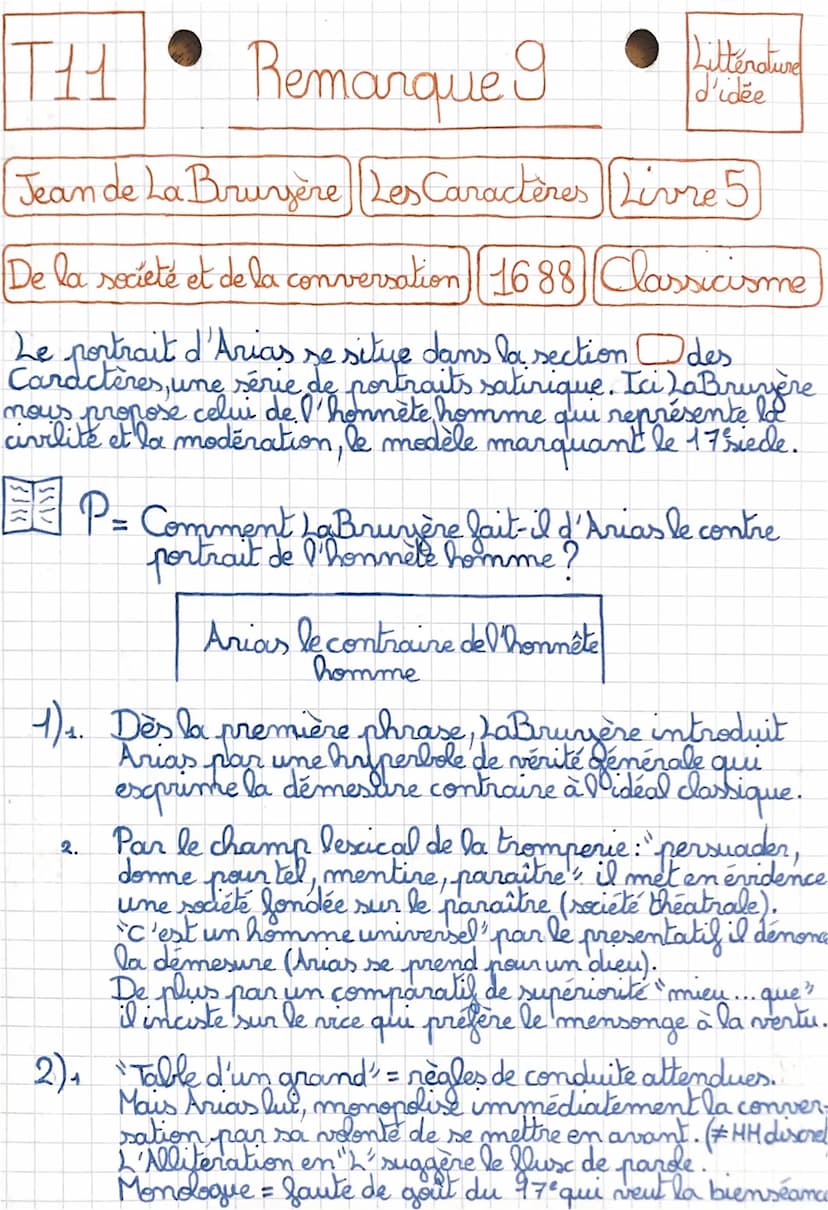 T11
Remarque 9
Littérature
d'idée
Jean de La Bruyère
Les Caractères
Livre 5
De la société et de la conversation
1688
Classicisme
Le portrait d'Arias se situe dans la section des
Caractères, une série de portraits satirique. Ici La Bruyère
nous propose celui de l'honnête homme qui représente la
civilité et la modération, le modèle marquant le 17e siecle.
P = Comment La Bruyère fait-il d'Arias le contre
portrait de l'honnête homme ?
Arias le contraire de l'honnête
homme
1) 1. Dès la première phrase, La Bruyère introduit
Arias par une hyperbole de vérité générale qui
exprime la démesure contraire à l'idéal classique.
2. Par le champ lexical de la tromperie : "persuader,
donne pour tel, mentire, paraître" il met en évidence
une société fondée sur le paraître (société théatrale).
"C'est un homme universel" par le presentatif il dénonc
la démesure (Arias se prend pour un dieu).
De plus par un comparatif de supériorité "mieu ... que"
il inciste sur le vice qui préfère le mensonge à la vertu.
2) 1 "Table d'un grand" = règles de conduite attendues.
Mais Arias lui, monopolise immédiatement la conver-
sation par sa volonté de se mettre en avant. (≠ HH discret
L'Allitération en "L" suggère le fluxc de parole.
Monologue = faute de goût du 17e qui veut la bienséanc